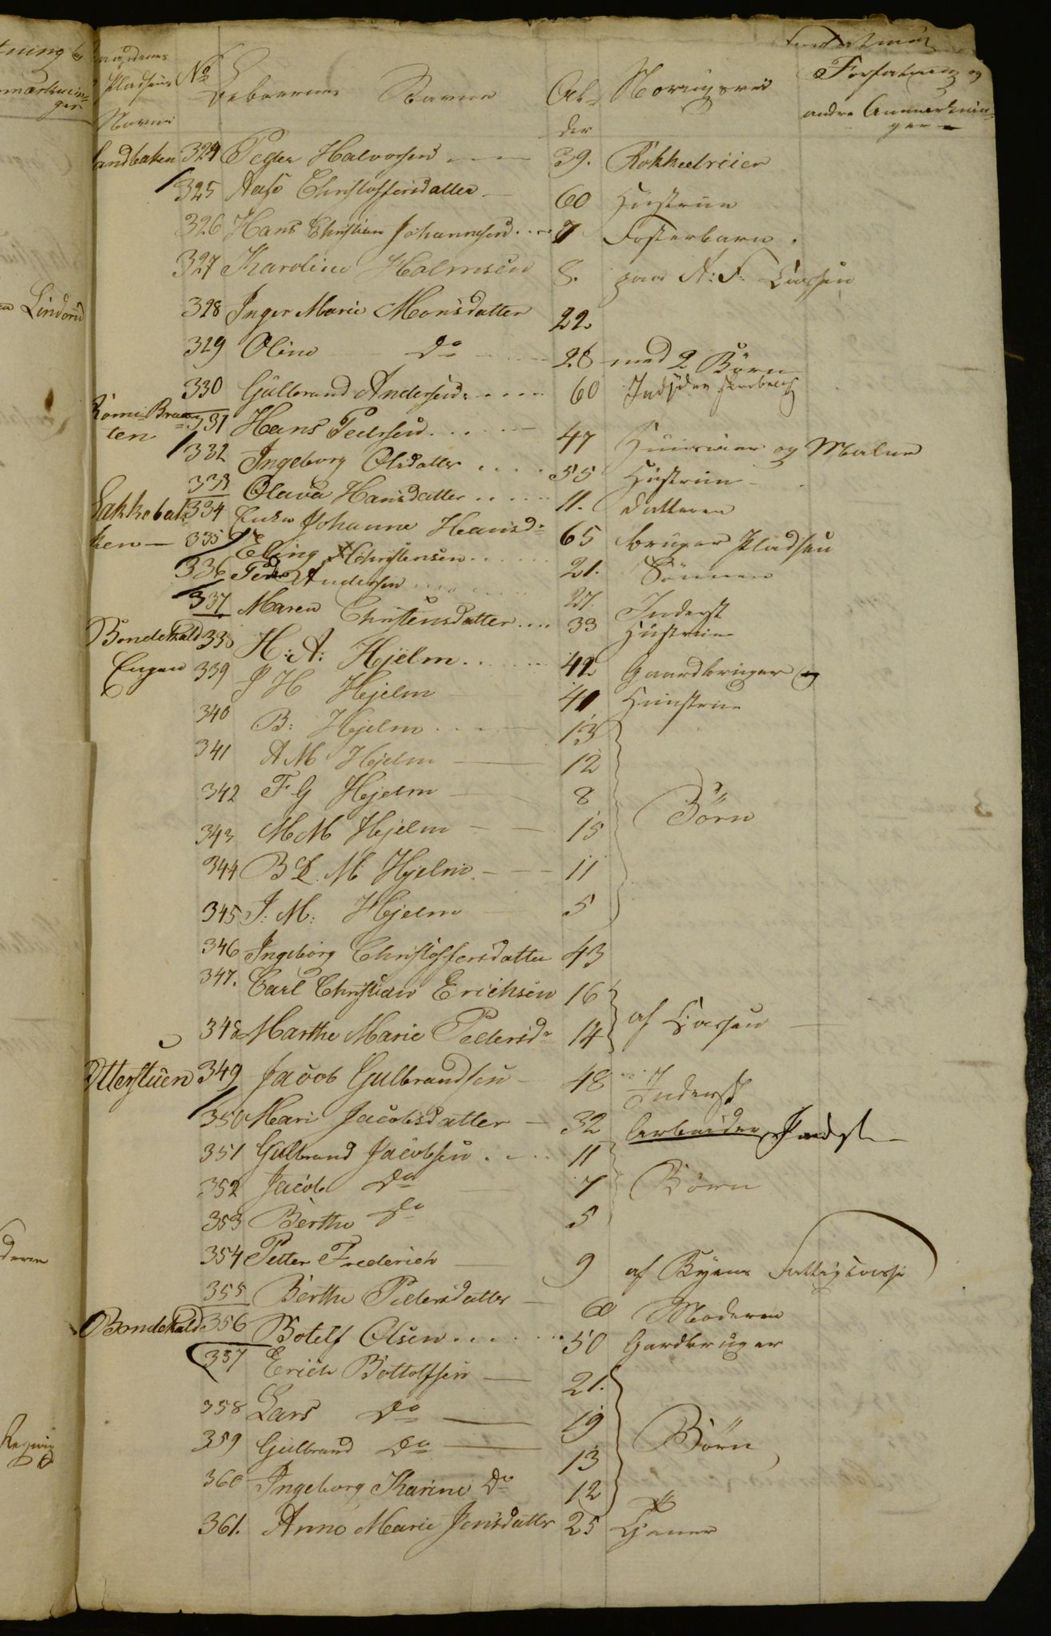 Pladsens No Beboernes Navne Alder Næringsvei Forfatning og andre Anmærkninger
Navne
Sandbaken 324 Peder Halvorsen 39. Rokkedreier
325 Aase Christoffersdatter 60 Hustrue
326 Hans Christian Johannesen 7 Fosterbarn
327 Karoline Holmsen 8.
328 Inger Marie Monsdatter 22.
329 Oline Do 28 med 2 Børn
330 Gulbrand Andersen 60
331 Hans Pedersen 47 Huusmand og Maler
332 Ingeborg Olsdatter 55 Hustrue
333 Olava Hansdatter 11. datteren
Bakkebakken 334 Enke Johanne Hansd: 65 bruger Pladsen
335 Christensen 21. Sønnen
336 Peder Andersen 27 Inderst
337 Maren Christensdatter 33 Hustrue
Bondekald 338 H: A: Hjelm 42 Gaardbruger og
Engen 339 J H Hjelm 41 Huustrue
340 B: Hjelm 13
341 A M Hjelm 12
342 F G Hjelm 8 Børn
343 M M Hjelm 15
344 B L. M Hjelm 11
345 J: M: Hjelm 5
346 Ingeborg Christoffersdatter 43
347. Carl Christian Erichsen 16
348 Marthe Marie Pedersd: 14 af Cassen
Otterstuen 349 Jacob Gulbrandsen 48 Inderst
350 Mari Jacobsdatter 32 Arbeider Inderst
351 Gulbrand Jacobsen 11
352 Jacob Do 7 Børn
353 Berthe Do 5
354 Petter Frederich 9 af Byens Fattigcasse
355 Berthe Pedersdatter Moderen
Bondekald 356 Botolf Olsen 50 Gardbruger
357 Erich Bottolfsen 21.
358 Lars Do 19
359 Gulbrand Do 13 Børn
360 Ingeborg Karine Do 12
361. Anne Marie Jensdatter 25 Tjener